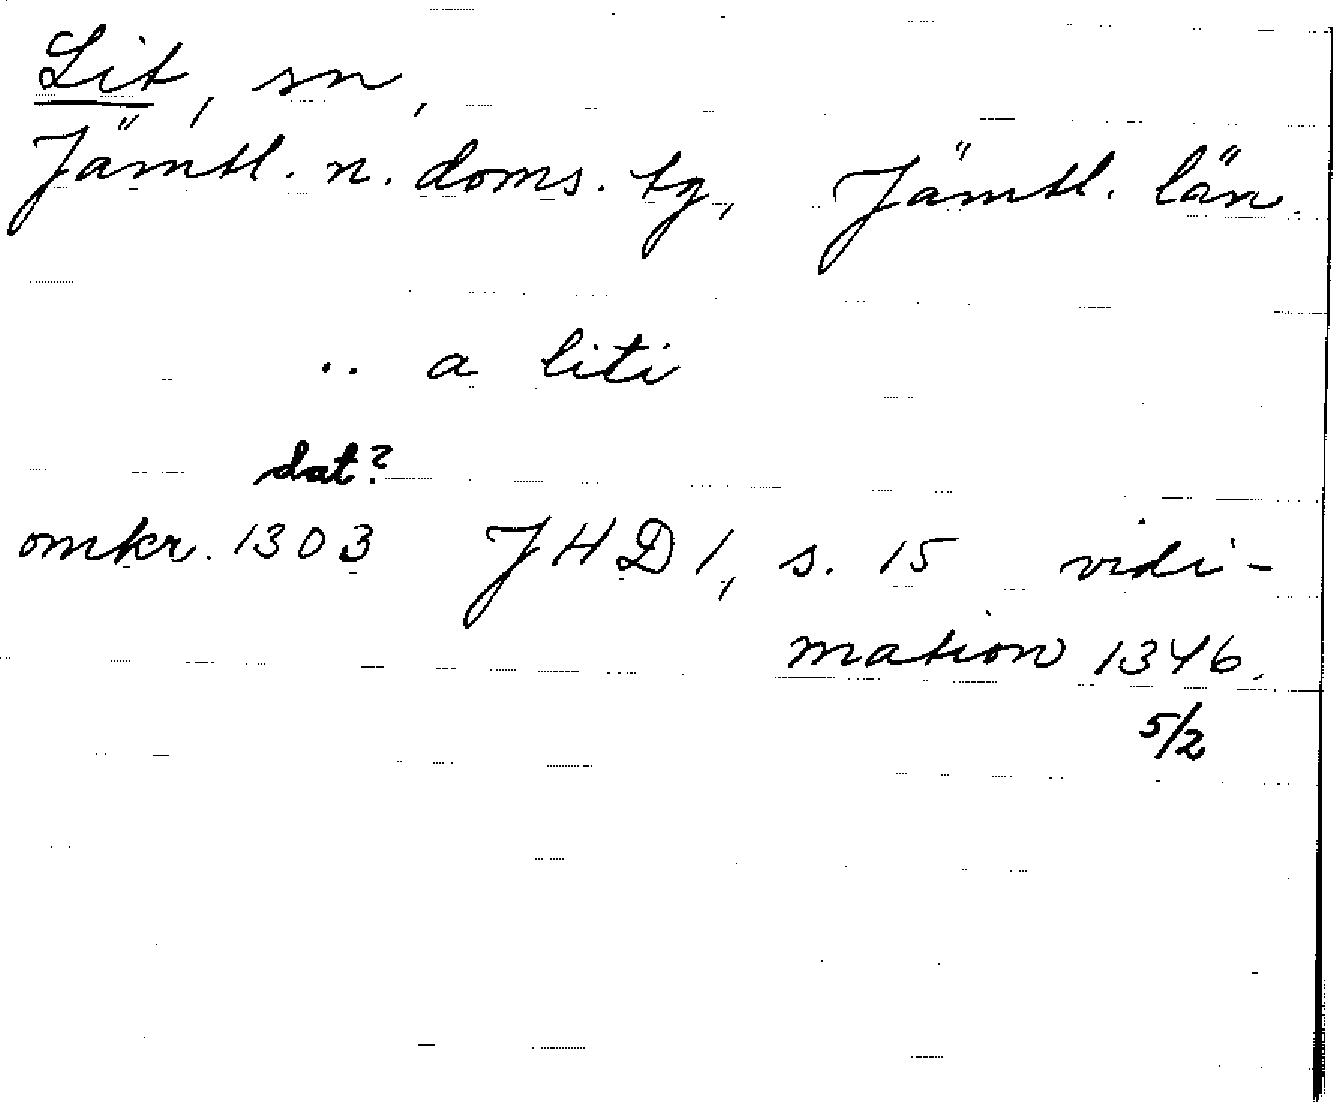 Lit, sn,
Jämtl. n. doms. tg, Jämtl. län.
.. a liti
dat?
omkr. 1303 JHD 1, s. 15 vidi-
mation 1346.
5/2